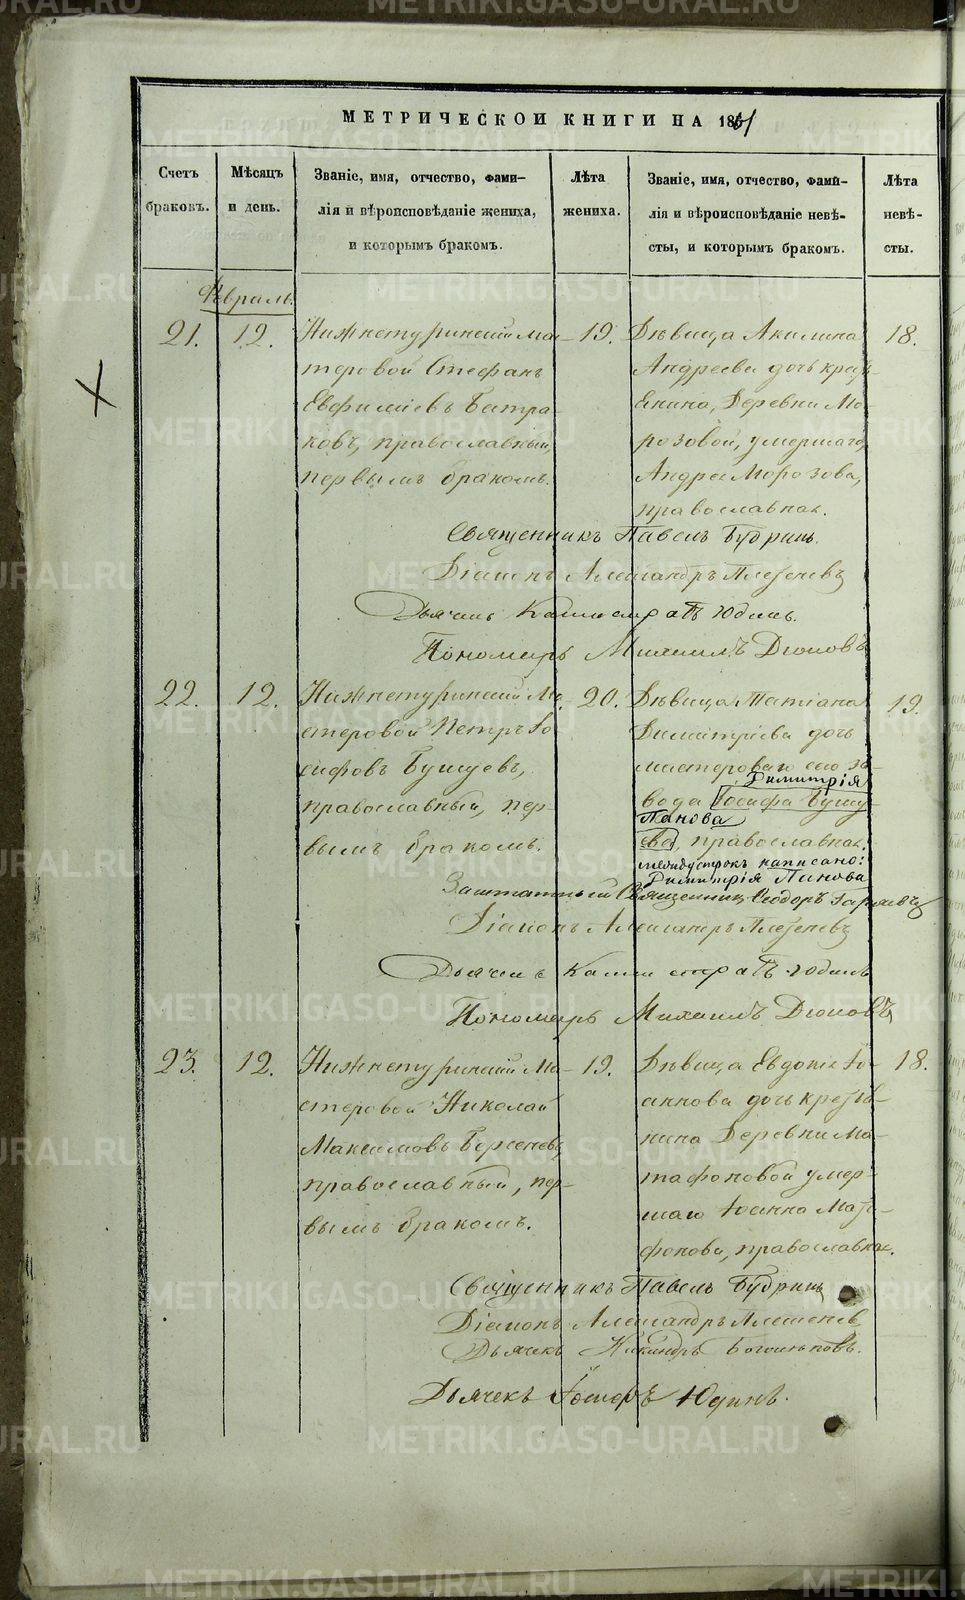 МЕТРИЧЕСКОЙ КНИГИ НА 1861
Счетъ браковъ.
Мѣсяцъ и день.
Званіе, имя, отчество, фами-
лія и вѣроисповѣданіе жениха,
и которымъ бракомъ.
Лѣта жениха.
Званіе, имя, отчество, фами-
лія и вѣроисповѣданіе невѣ-
сты, и которымъ бракомъ.
Лѣта невѣ-
сты.
Февраль.
21. 12.
Нижнетуринскій ма-
теровой Стефанъ
Евфиміевъ Батра-
ковъ, православный,
первымъ бракомъ.
19.
Дѣвица Акилина
Андреева дочь крест-
янина, Деревни Мо-
розовой, умершаго
Андрея Морозова,
православная.
18.
Священникъ Павелъ Будринъ.
Діаконъ Александръ Плетеневъ
Дьячекъ Каллистратъ Юдинъ.
Пономарь Михаилъ Дюковъ
22. 12.
Нижнетуринскій ма-
стеровой Петръ Іо-
сифовъ Бушуевъ,
православный, пер-
вымъ бракомъ.
20.
Дѣвица Татіана
Димитріева дочь
мастероваго сего за-
Димитрія
вода Іосифа Бушу-
Панова
ева, православная.
между строкъ написано:
Димитрія Панова
19.
Заштатный Священникъ Ѳеодоръ
Діаконъ Александръ Плетеневъ
Дьячекъ Каллистратъ Юдинъ
Пономарь Михаилъ Дюковъ
23. 12.
Нижнетуринскій ма-
стеровой Николай
Максимовъ
православный, пер-
вымъ бракомъ.
19.
Дѣвица Евдокія Іо-
аннова дочь крестья-
нина Деревни Ма-
тафоновой умер-
шаго Іоанна Мата-
фонова, православная.
18.
Священникъ Павелъ Будринъ
Діаконъ Александръ Плетеневъ
Дьячекъ Никандръ
Дьячекъ Іосифъ Юдинъ.
METRIKI.GASO-URAL.RU